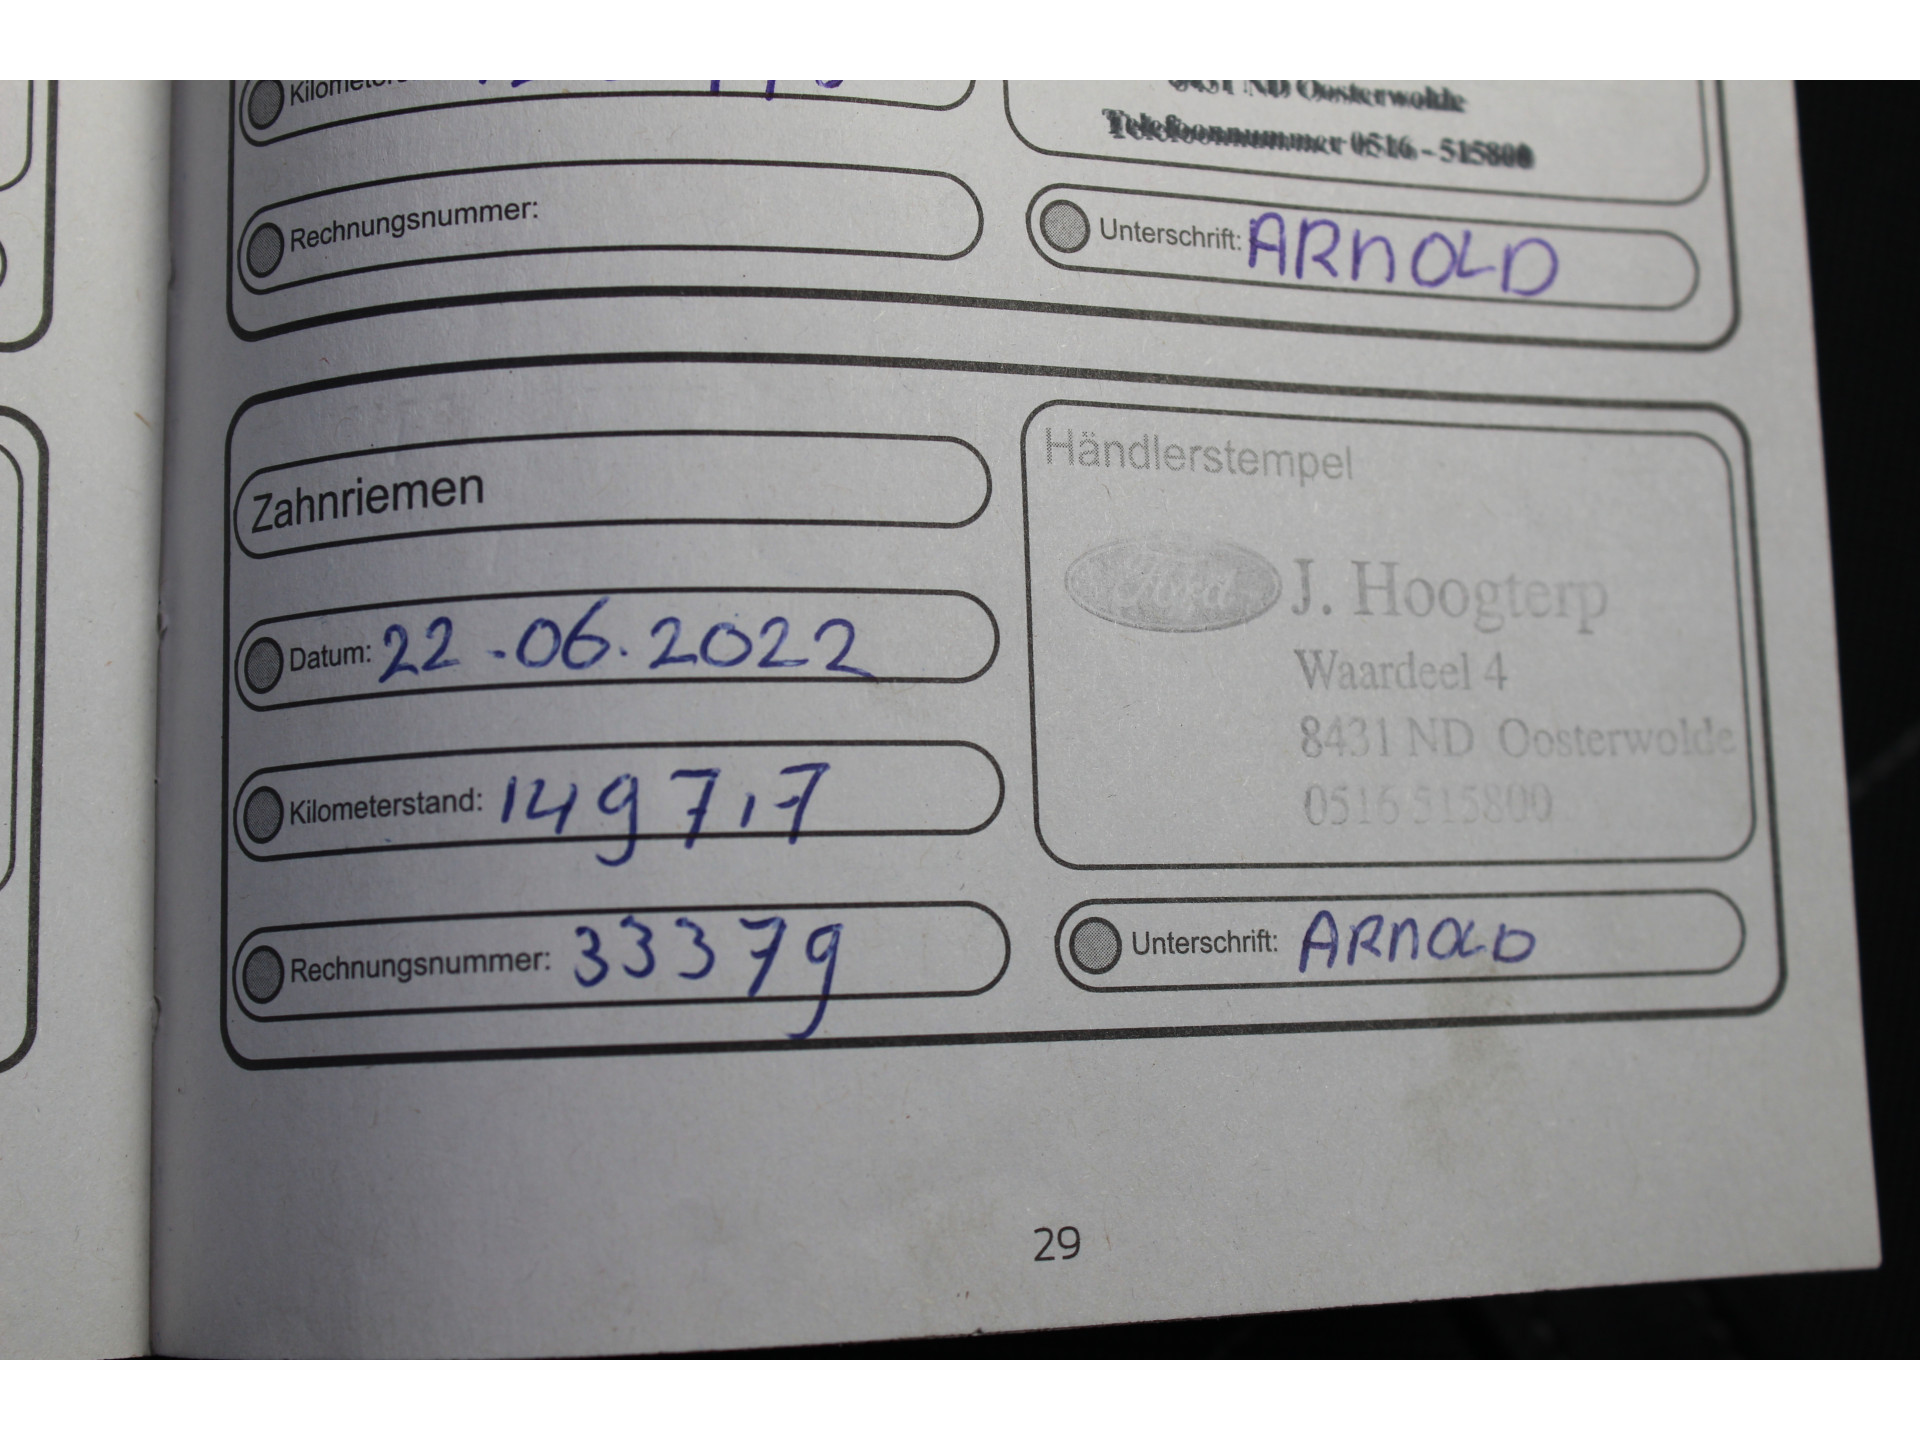 8431 ND Oosterwolde
Telefoonnummer 0516 - 515800
Rechnungsnummer:
Unterschrift: ARNOLD
Zahnriemen
Händlerstempel
Ford J. Hoogterp
Waardeel 4
8431 ND Oosterwolde
0516 515800
Datum: 22-06.2022
Kilometerstand: 149717
Rechnungsnummer: 33379
Unterschrift: ARNOLD
29